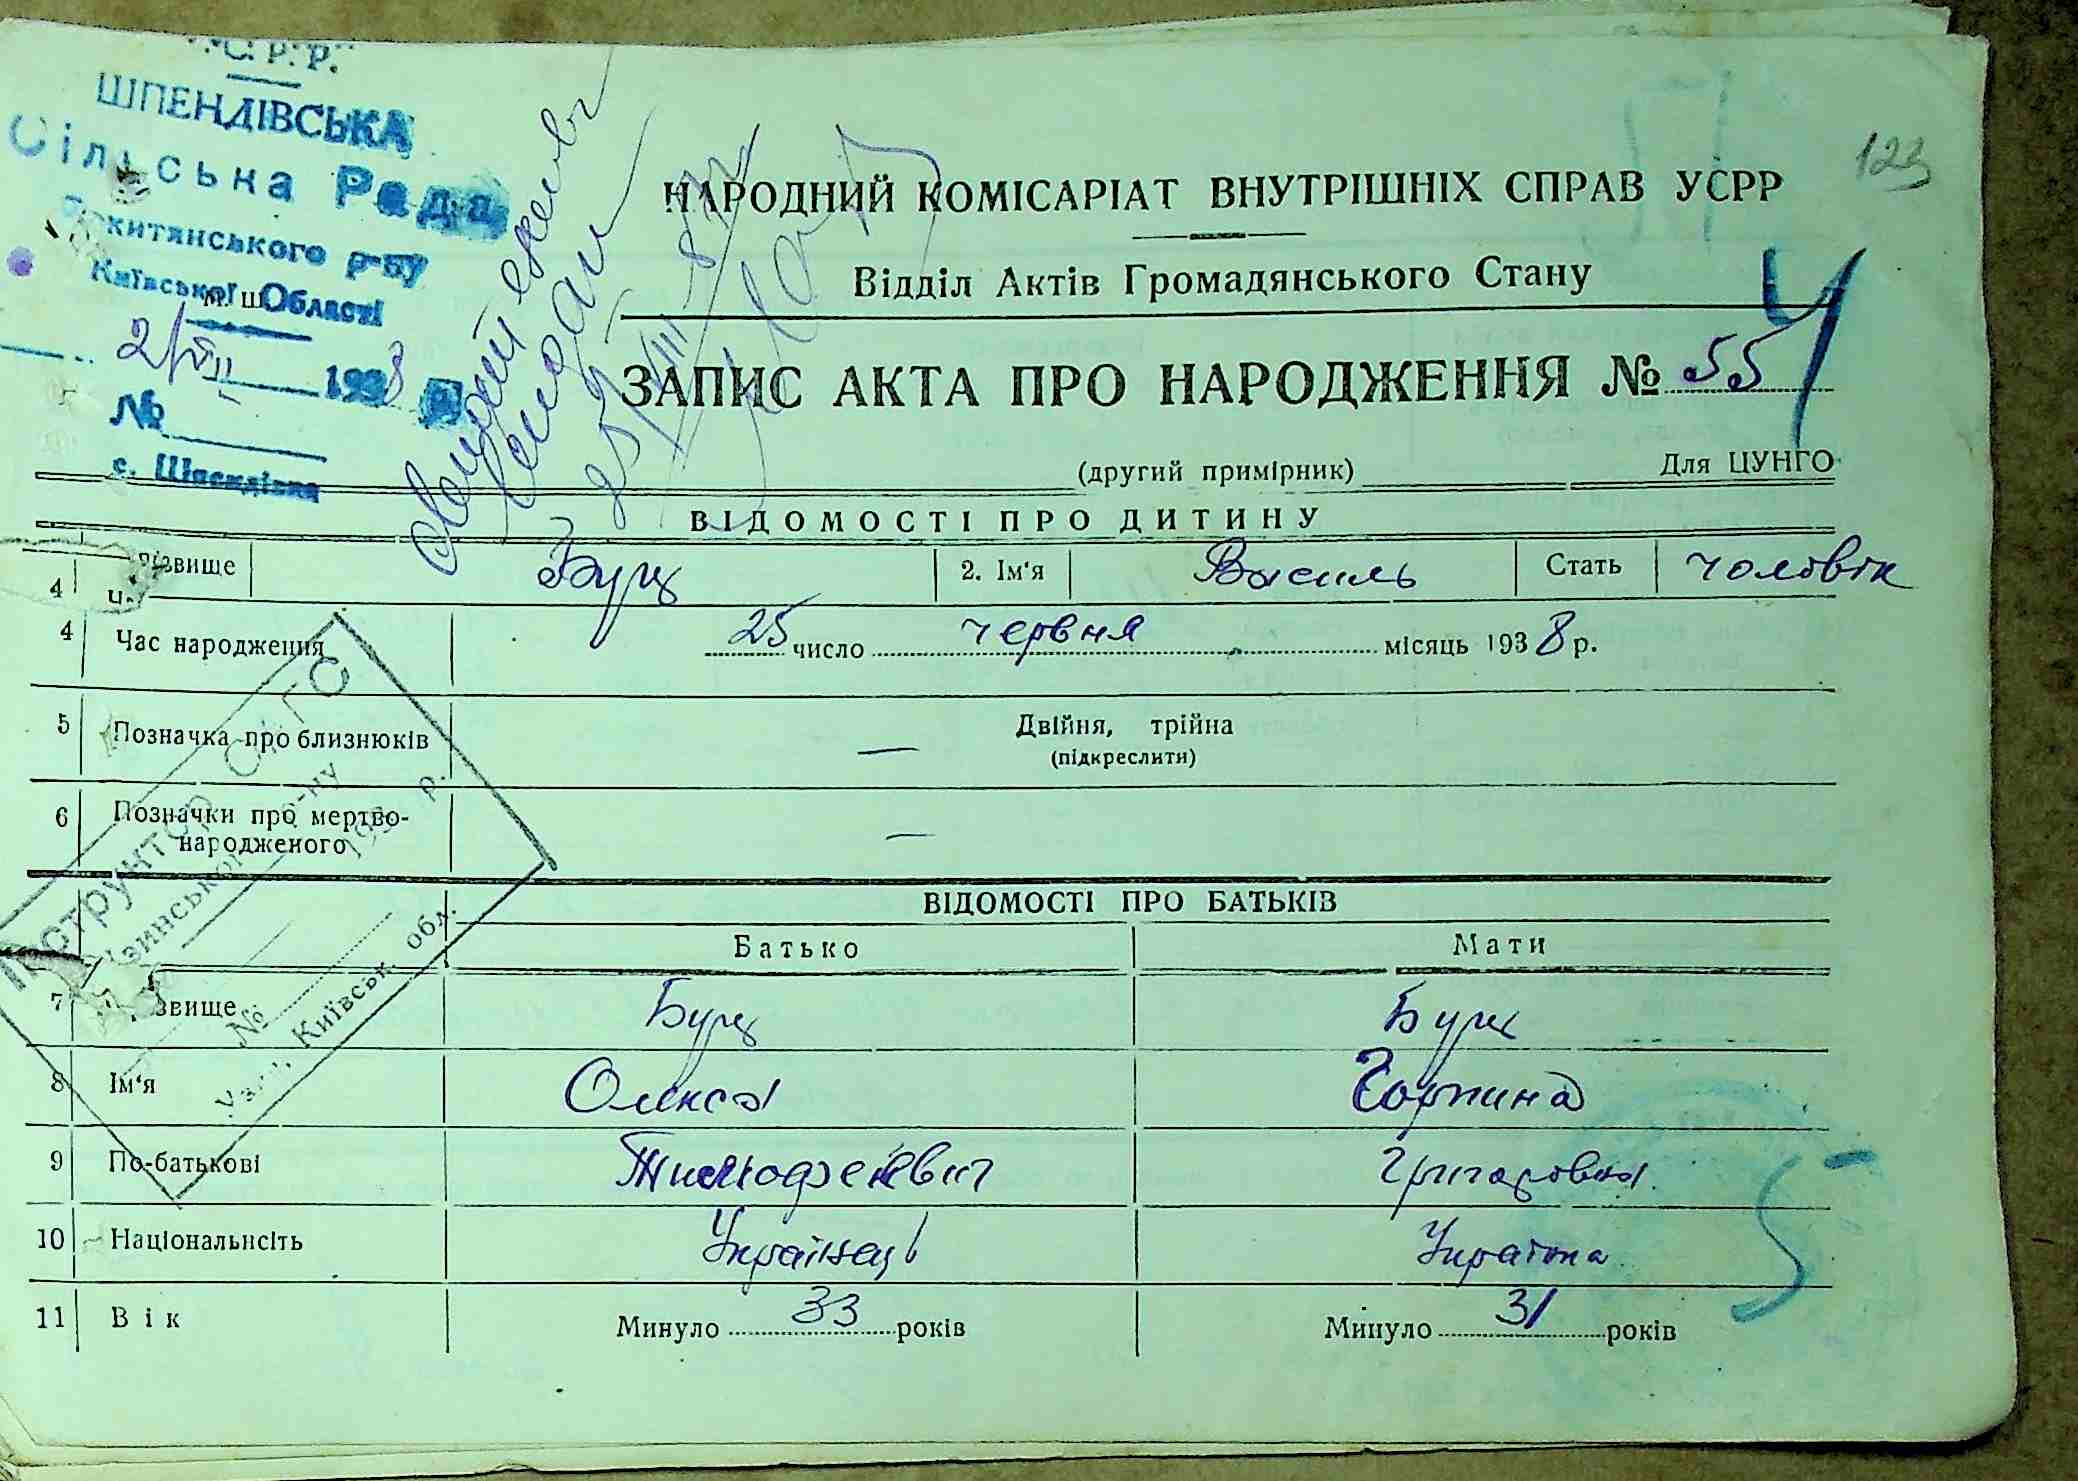 С. Р. Р.
ШПЕНДІВСЬКА
Сільська Рада
китянського р-ну
Київської Області
2/VII 1938 р.
№
с. Шпендівка
123
НАРОДНИЙ КОМІСАРІАТ ВНУТРІШНІХ СПРАВ УСРР
Відділ Актів Громадянського Стану
ЗАПИС АКТА ПРО НАРОДЖЕННЯ № 55
(другий примірник) Для ЦУНГО
ВІДОМОСТІ ПРО ДИТИНУ
Різвище Бурц 2. Ім'я Василь Стать чоловік
4 Час народження 25 число червня місяць 1938 р.
5 Позначка про близнюків Двійня, трійна
(підкреслити) —
6 Позначки про мертво-
народженого —
ВІДОМОСТІ ПРО БАТЬКІВ
Батько Мати
7 звище Бурц Бурц
8 Ім'я Олекса Горпина
9 По-батькові Тимофеєвич Григоровна
10 Національнсіть Українец Українка
11 Вік Минуло 33 років Минуло 31 років
Інструктор ЗАГС
зинського р-ну
193 р.
№
Київськ. обл.